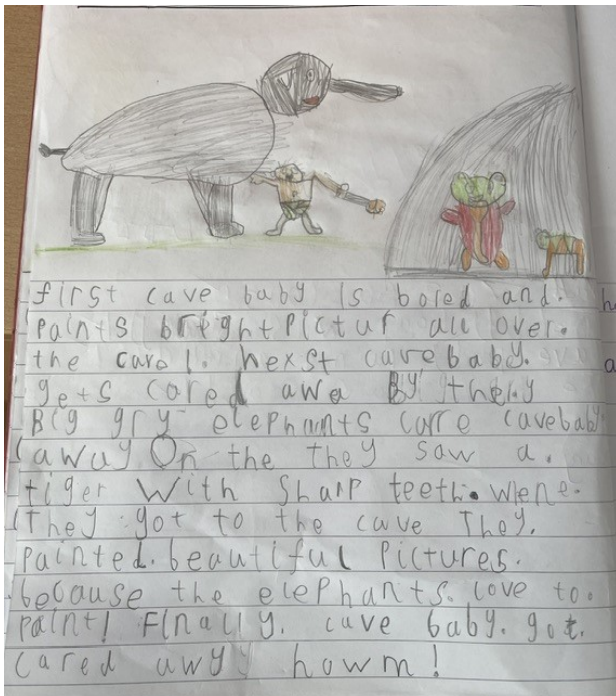 first cave baby is boied and.
paints bright pictur all over.
the cave l. hexst cavebaby.
gets cared awa By they
Big gry elephants carre cavebaby
away On the they saw a.
tiger with sharp teeth. wene.
They got to the cave They.
painted. beautiful pictures.
because the elephants. love to.
paint! Finally. cave baby. got.
cared awyy howm!
h
a